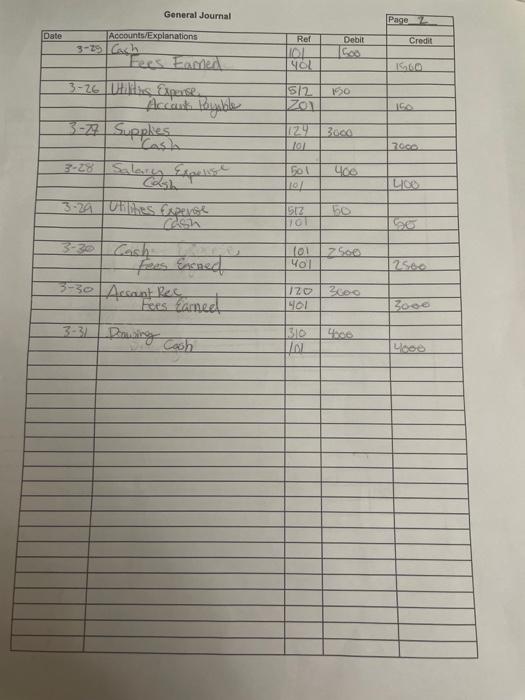 General Journal
Page 2
Date Accounts/Explanations Ref Debit Credit
Cash 101 1500
Fees Earned 401 1500
3-26 Utilities Expense 512 150
Accounts Payable 201 150
3-27 Supplies 124 3000
Cash 101 3000
3-28 Salary Expense 501 400
Cash 101 400
3-29 Utilities Expense 512 50
Cash 101 50
3-30 Cash 101 2500
Fees Earned 401 2500
3-30 Account Rec 120 3000
Fees Earned 401 3000
3-31 Drawing 310 4000
Cash 101 4000